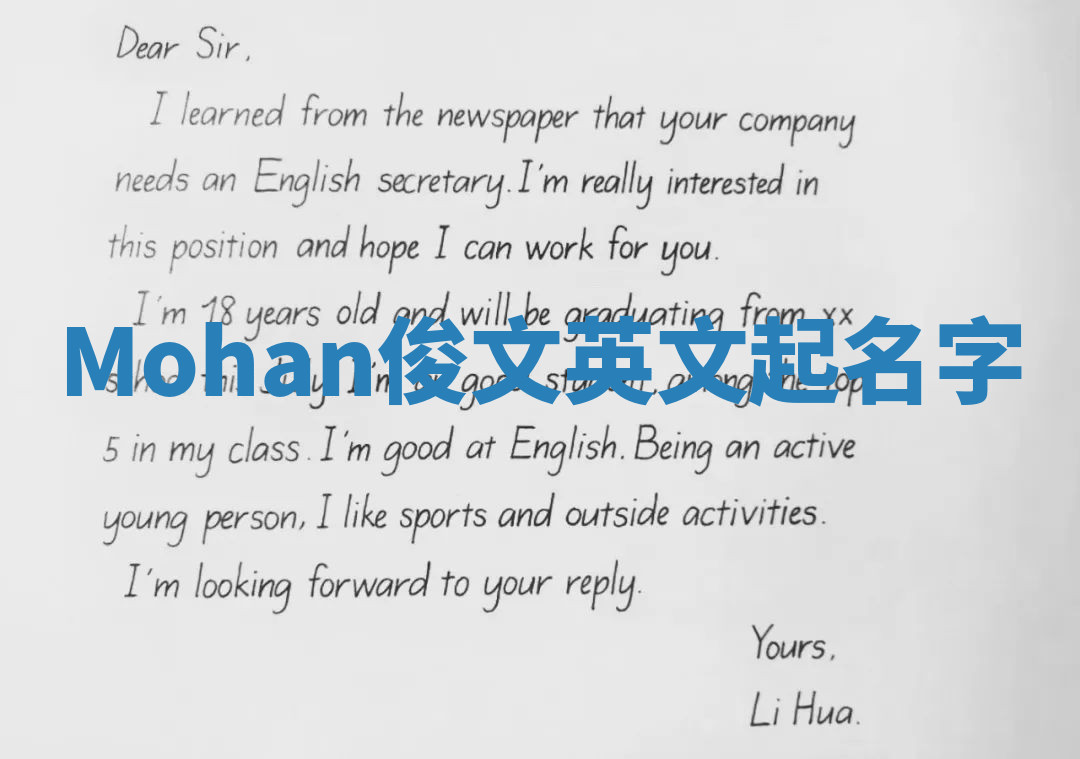 Dear Sir,
I learned from the newspaper that your company
needs an English secretary. I'm really interested in
this position and hope I can work for you.
I'm 18 years old and will be graduating from xx
Mohan俊文英文起名字
school this July. I'm a good student, among the top
5 in my class. I'm good at English. Being an active
young person, I like sports and outside activities.
I'm looking forward to your reply.
Yours,
Li Hua.